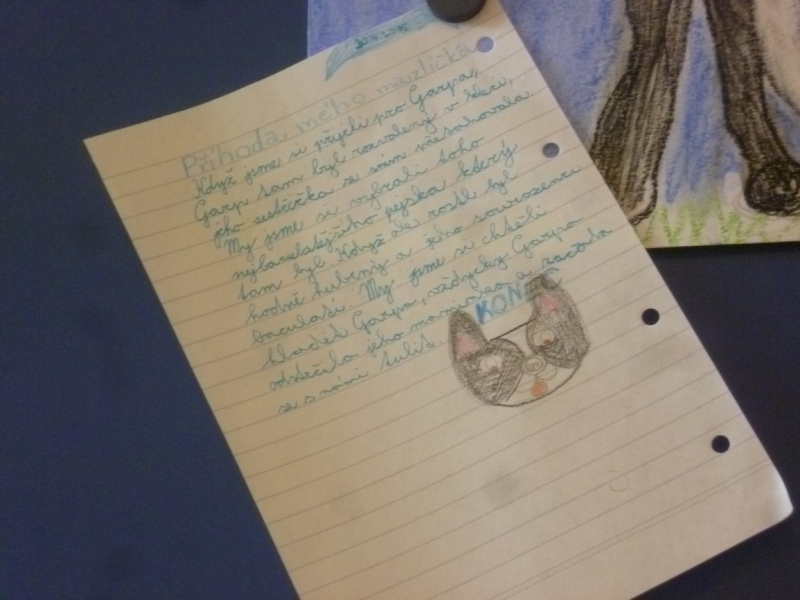 Příhoda mého mazlíčka
Když jsme si přijeli pro Garpa,
Garp tam byl rozvalený v kleci,
jeho sestřička se s ním
My jsme si vybrali toho
nejbaculatějšího pejska který
tam byl. Když ale rostl byl
hodně hubený a jeho sourozenci
baculatí. My jsme si chtěli
hladit Garpa, vždycky Garpa
odstrčila jeho maminka a začala
se s námi tulit.
KONEC